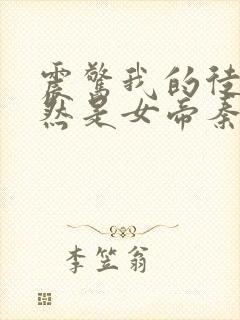 震惊我的徒
然是女帝秦
李笠翁